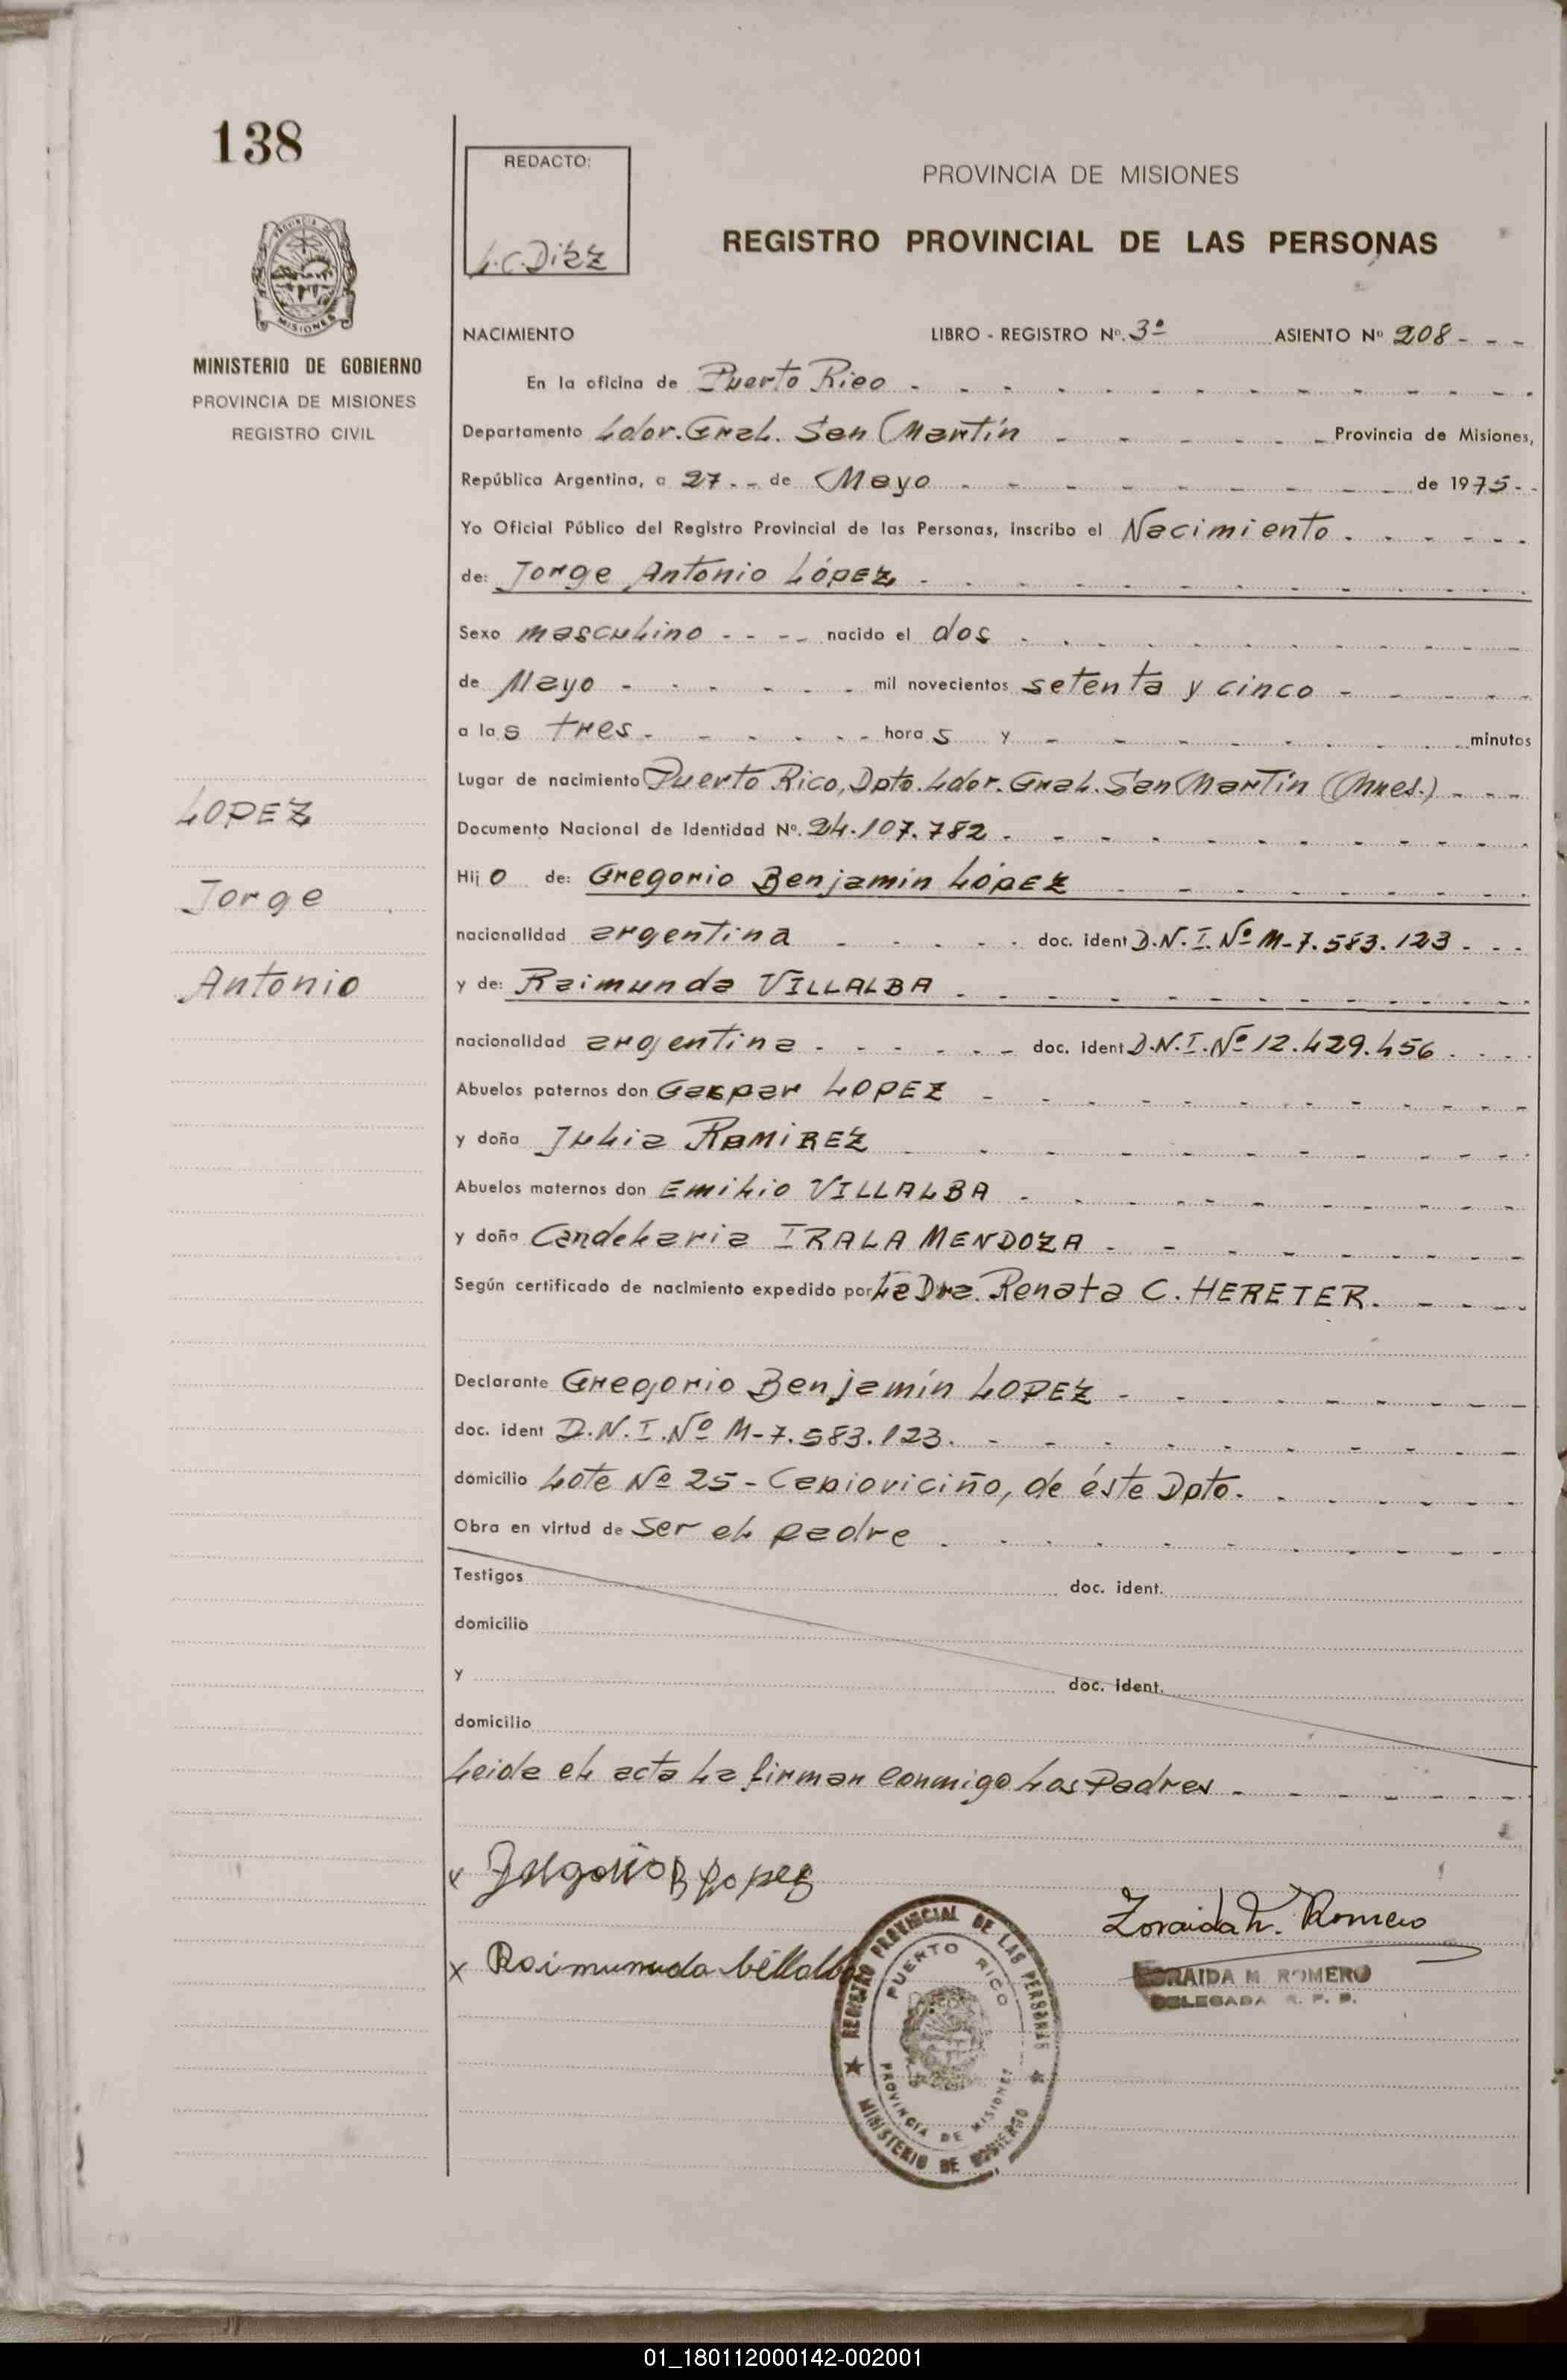 138
REDACTO:
L.C.Diaz
PROVINCIA DE MISIONES
REGISTRO PROVINCIAL DE LAS PERSONAS
MISIONES
MINISTERIO DE GOBIERNO
PROVINCIA DE MISIONES
REGISTRO CIVIL
NACIMIENTO LIBRO - REGISTRO Nº. 3º ASIENTO Nº 208 - - -
En la oficina de Puerto Rico
Departamento Ldor. Gral. San Martín Provincia de Misiones,
República Argentina, a 27 de Mayo de 1975
Yo Oficial Público del Registro Provincial de las Personas, inscribo el Nacimiento
de: Jorge Antonio López
Sexo masculino nacido el dos
de Mayo mil novecientos setenta y cinco
a las tres horas y minutos
Lugar de nacimiento Puerto Rico, Dpto. Ldor. Gral. San Martín (Mnes.)
Documento Nacional de Identidad Nº. 24.107.782
Hijo de: Gregorio Benjamín López
nacionalidad argentina doc. ident D.N.I. Nº M-7.583.123
y de: Raimunda VILLALBA
nacionalidad argentina doc. ident D.N.I. Nº 12.429.456
Abuelos paternos don Gaspar LOPEZ
y doña Julia RAMIREZ
Abuelos maternos don Emilio VILLALBA
y doña Candelaria IRALA MENDOZA
Según certificado de nacimiento expedido por La Dra. Renata C. HERETER.
Declarante Gregorio Benjamín LOPEZ
doc. ident D.N.I. Nº M-7.583.123.
domicilio Lote Nº 25 - Capioviciño, de éste Dpto.
Obra en virtud de ser el padre
Testigos doc. ident.
domicilio
y doc. ident.
domicilio
Leida el acta la firman conmigo los Padres
LOPEZ
Jorge
Antonio
x Gregorio B Lopez
x Raimunda Villalba
Zoraida M. Romero
ZORAIDA M. ROMERO
DELEGADA R. P. P.
REGISTRO PROVINCIAL DE LAS PERSONAS
PUERTO RICO
PROVINCIA DE MISIONES
MINISTERIO DE GOBIERNO
01_180112000142-002001